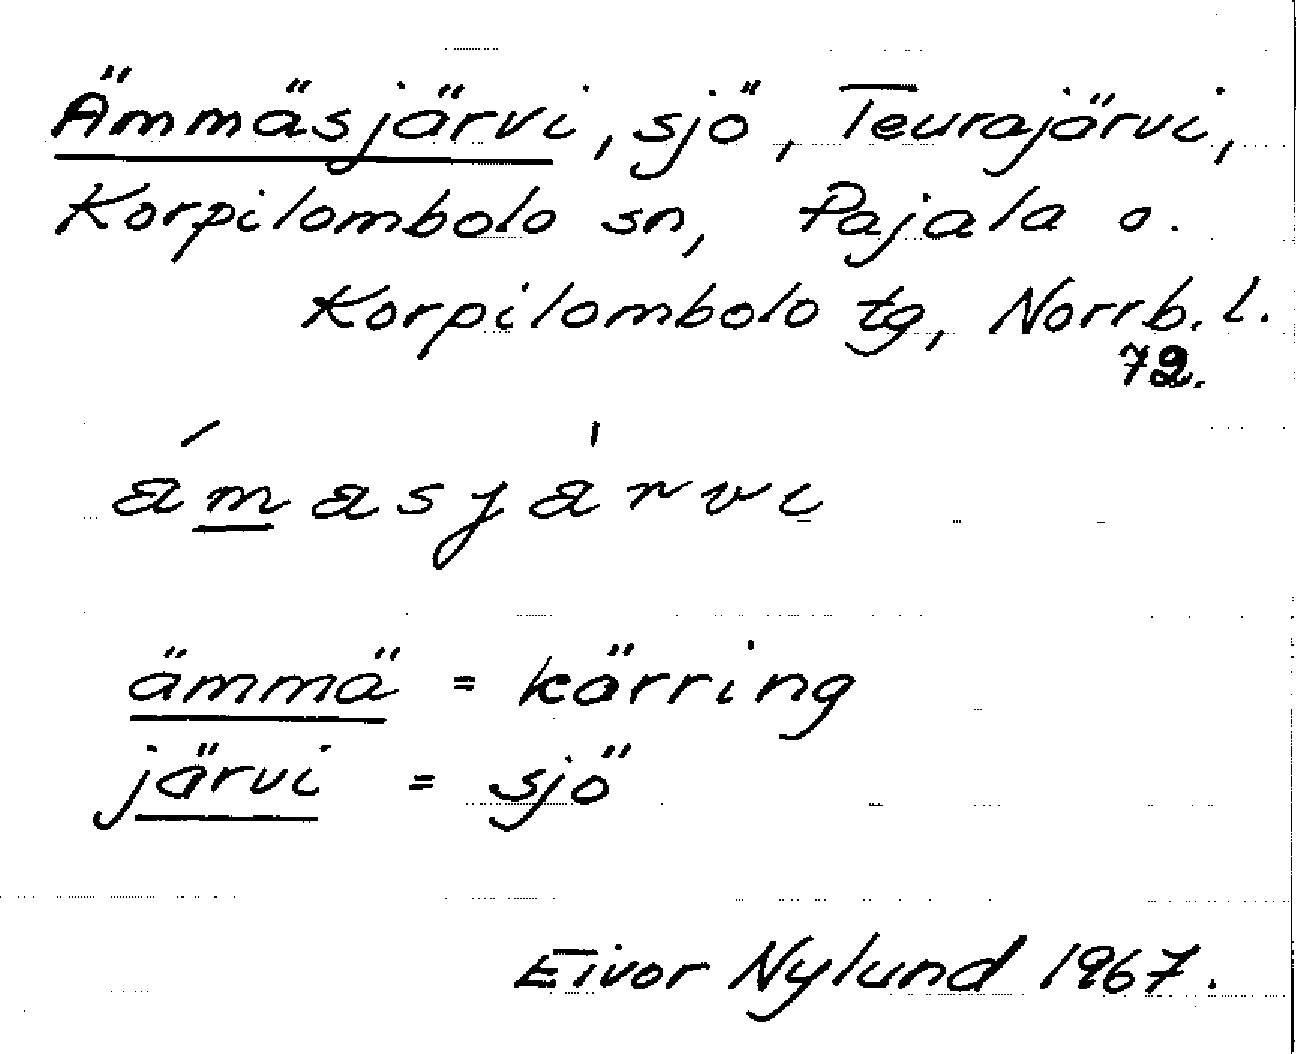 Ämmäsjärvi, sjö, Teurajärvi,
Korpilombolo sn, Pajala o.
Korpilombolo tg, Norrb. l.
72.
ämmä = kärring
järvi = sjö
Eivor Nylund 1967.